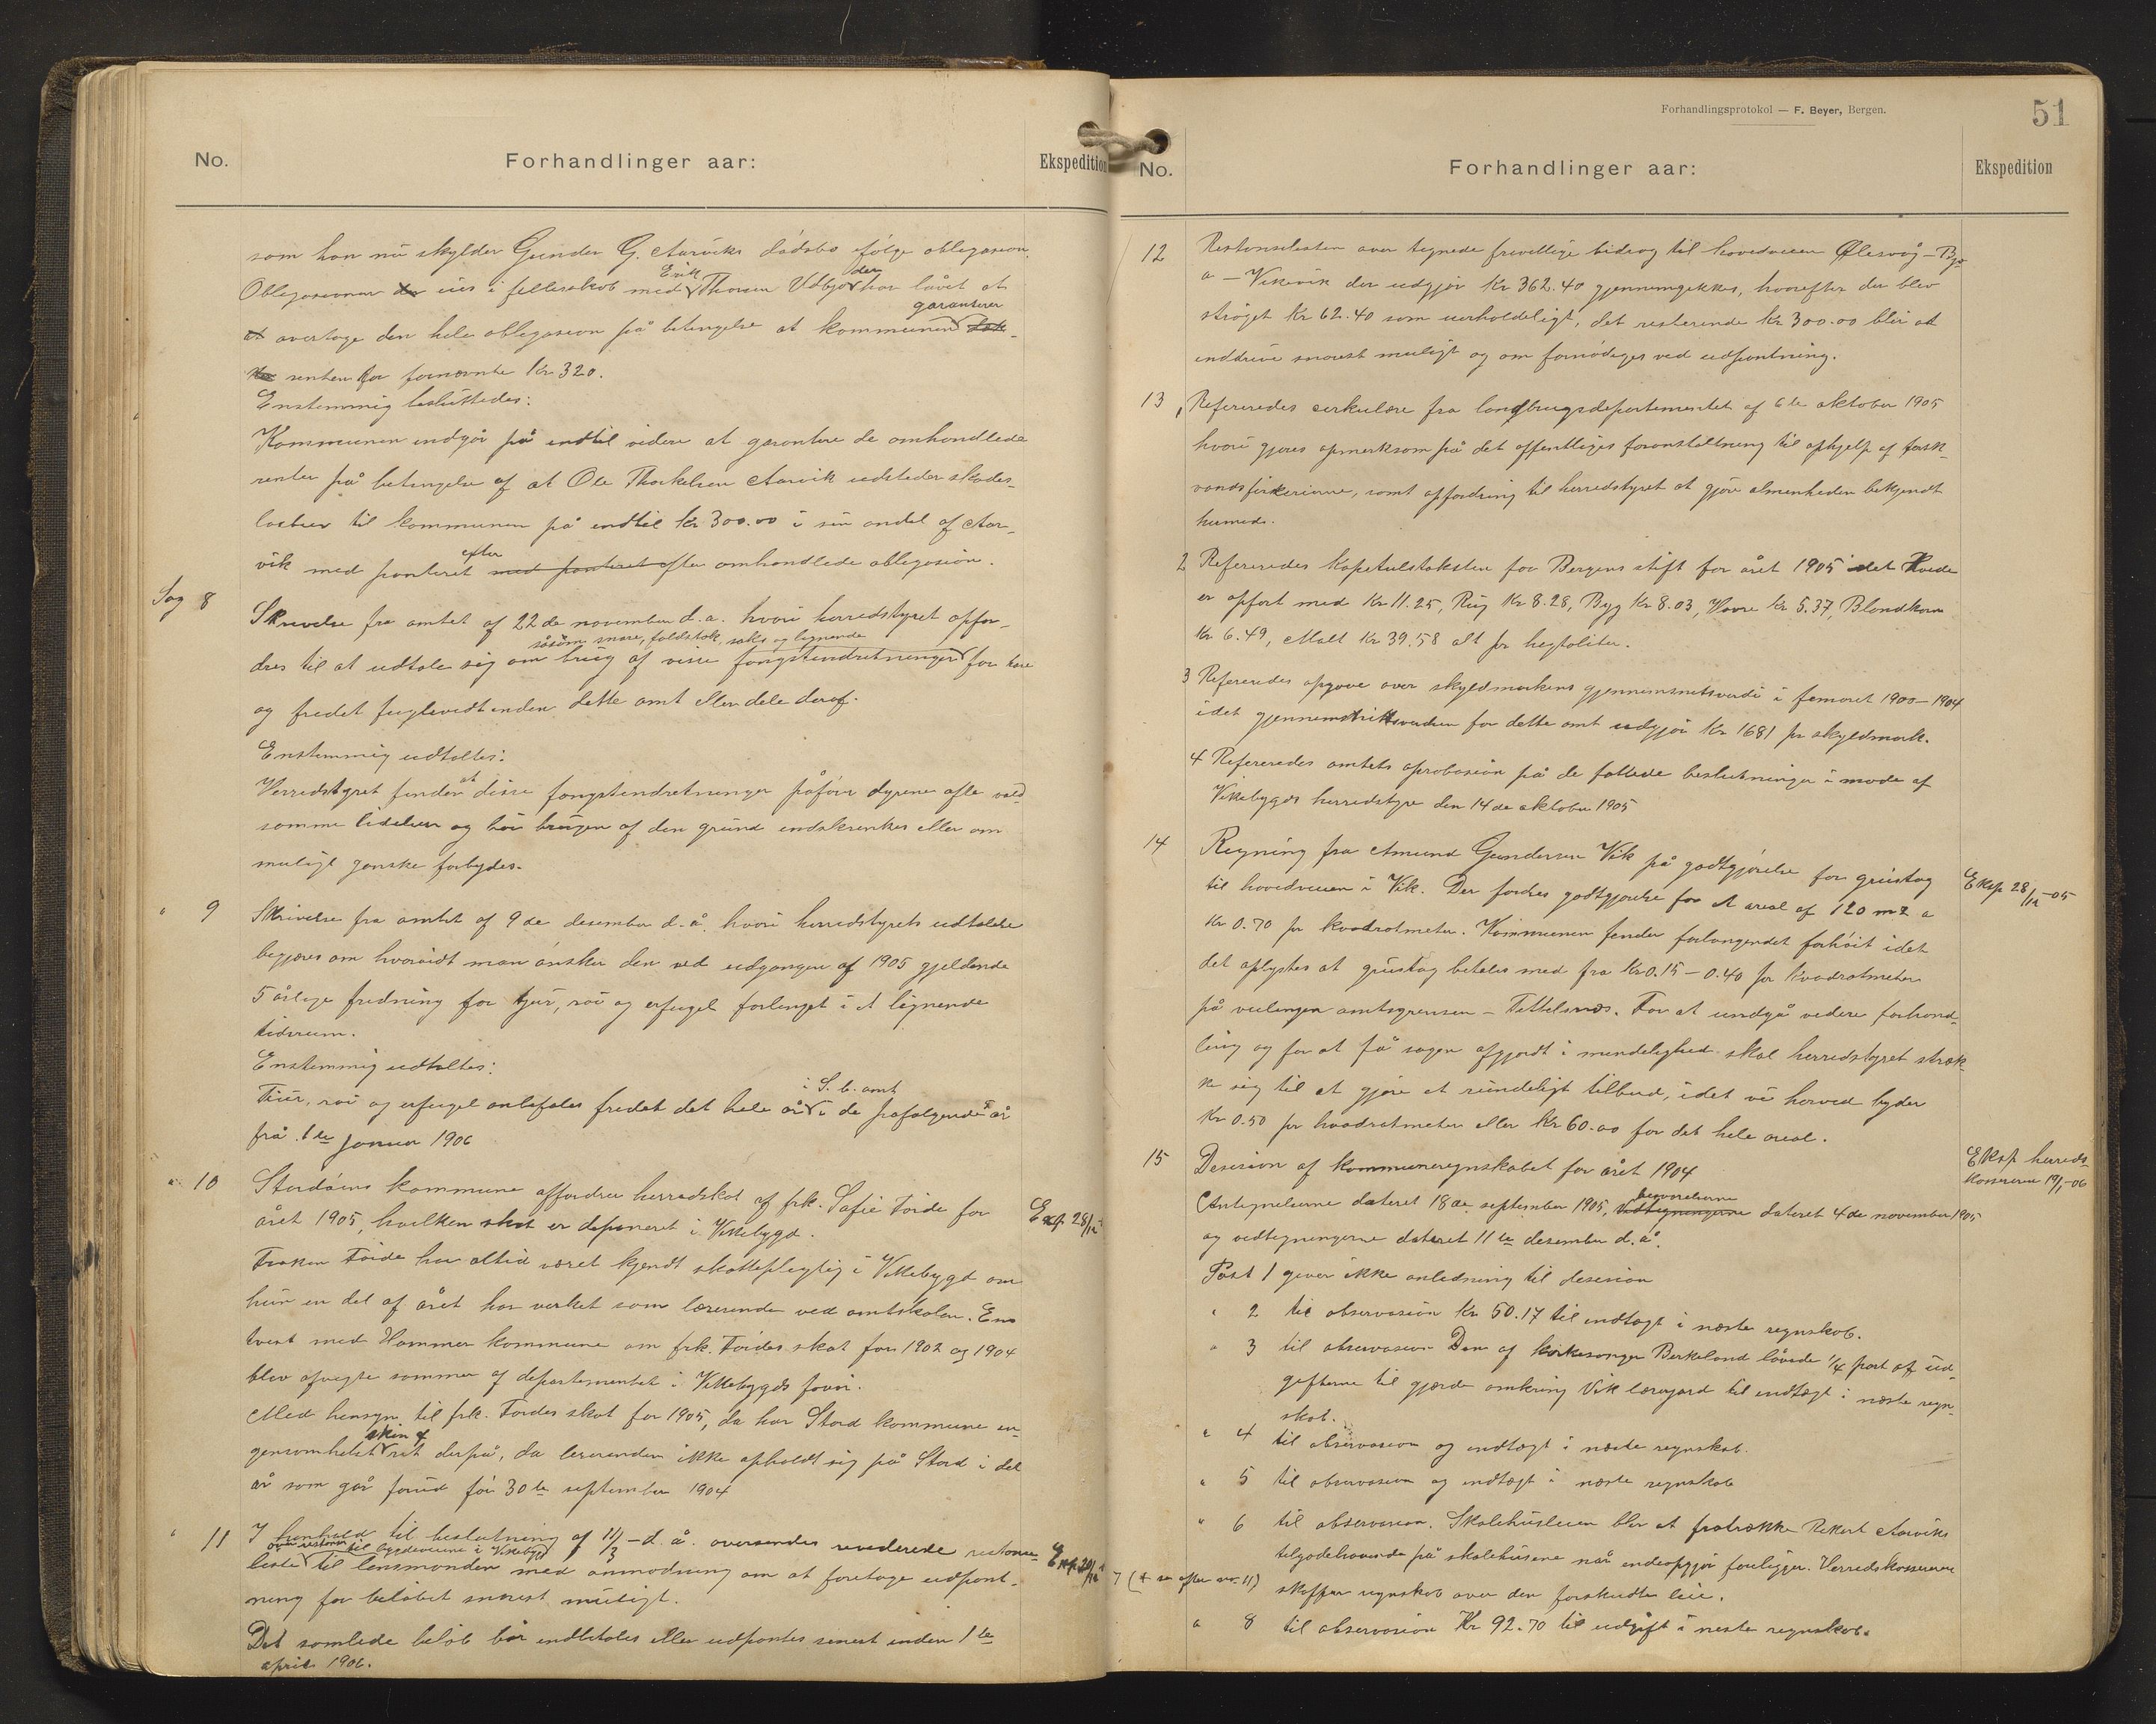 No.
Forhandlinger aar:
Ekspedition
som han nu skylder Gunder G. Aarviks dødsbo ifølge obligasion.
Obligasionen eies i fellesskab med Erik Thorsen Udbjø der har låvet at
at overtage den hele obligasion på betingelse at kommunen garanterer
renten for fornævnte Kr 320.
Enstemmig besluttedes:
Kommunen indgår på indtil videre at garantere de omhandlede
renter på betingelse af at Ole Thorkelsen Aarvik udsteder skades-
løsbrev til kommunen på indtil kr 300.00 i sin andel af Aar-
vik med panteret efter med panteret efter omhandlede obligasion.
Sag 8
Skrivelse fra amtet af 22de november d.a. hvori herredstyret opfor-
såsom snare, foldstok, saks og lignende
dres til at udtale sig om brug af visse fangstindretninger for hare
og fredet fuglevildt inden dette amt eller dele deraf.
Enstemmig udtaltes:
Herredstyret finder at disse fangstindretninger påfører dyrene ofte vold-
somme lidelser og bør brugen af den grund indskrenkes eller om
muligt ganske forbydes.
" 9
Skrivelse fra amtet af 9de desember d.å. hvori herredstyrets udtalelse
begjæres om hvorvidt man ønsker den ved udgangen af 1905 gjeldende
5 årlige fredning for tjur, røi og erfugel forlenget i et lignende
tidsrum.
Enstemmig udtaltes:
Tiur, røi og erfugel anbefales fredet det hele år i S. b. amt i de påfølgende 5 år
frå 1ste januar 1906
" 10
Stordøens kommune affordrer herredskat af frk. Sofie Førde for
året 1905, hvilken skat er deponeret i Vikebygd.
Eksp. 28/12
Frøken Førde har altid været kjendt skattepligtig i Vikebygd om
hun en del af året har virket som lærerinde ved amtskolen. En
tvist med Hammer kommune om frk. Førdes skat for 1902 og 1904
blev afvigte sommer af departementet i Vikebygds favør.
Med hensyn til frk. Førdes skat for 1905, da har Stord kommune in-
gensomhelst skin af ret derpå, da lærerinden ikke opholdt sig på Stord i det
år som går forud før 30te september 1904
" 11
I henhold til beslutning af 11/3 – d.å. oversendes reviderede restanse-
liste over restanser til bygdeveiene i Vikebygd til lensmanden med anmodning om at foretage udpant-
Eksp. 28/12
ning for beløbet snarest muligt.
Det samlede beløb bør indbetales eller udpantes senest inden 1te
april 1906.
Forhandlingsprotokol — F. Beyer, Bergen.
51
No.
Forhandlinger aar:
Ekspedition
12
Restanselisten over tegnede frivillige bidrag til hovedveien Ølesvåg – Bjo-
a – Vikevik der udgjør Kr 362.40 gjennemgikkes, hvorefter der blev
strøget Kr 62.40 som uerholdeligt, det resterende Kr 300.00 blir at
inddrive snarest muligt og om fornødiges ved udpantning.
13
1 Refereredes cirkulære fra landbrugsdepartementet af 6te oktober 1905
hvori gjøres opmerksom på det offentliges foranstaltning til ophjelp af fersk-
vandsfiskerierne, samt opfordring til herredstyret at gjøre almenheden bekjendt
hermed.
2 Refereredes kapitelstaksten for Bergens stift for året 1905 idet Hvede
er opført med Kr 11.25, Rug Kr 8.28, Byg Kr 8.03, Havre Kr 5.37, Blandkorn
Kr 6.49, Malt Kr 39.58 alt pr hegtoliter.
3 Refereredes opgave over skyldmarkens gjennemsnitsverdi i femåret 1900–1904
idet gjennemsnitsverdien for dette amt udgjør Kr 1681 pr skyldmark.
4 Refereredes amtets aprobasion på de fattede beslutninger i møde af
Vikebygds herredstyre den 14de oktober 1905
14
Regning fra Amund Gundersen Vik på godtgjørelse for grustag
Eksp 28/12–05
til hovedveien i Vik. Der fordres godtgjørelse for et areal af 120 m2 a
Kr 0.70 pr kvadratmeter. Kommunen finder forlangendet forhøit idet
det oplystes at grustag betales med fra Kr 0.15 – 0.40 pr kvadratmeter
på veilengen amtsgrensen – Tittelsnes. For at undgå videre forhand-
ling og for at få sagen afgjordt i mindelighed skal herredstyret stræk-
ke sig til at gjøre et rundeligt tilbud, idet vi herved byder
Kr 0.50 pr kvadratmeter eller Kr 60.00 for det hele areal.
15
Desision af kommuneregnskabet for året 1904
Eksp herreds-
kassereren 19/1–06
Antegnelserne dateret 18de september 1905, vedtegningerne besvarelserne dateret 4de november 1905
og vedtegningerne dateret 11te desember d.å.
Post 1 giver ikke anledning til desision
" 2 til observasion Kr 50.17 til indtægt i næste regnskab.
" 3 til observasion Den af kirkesanger Berkeland lovede 1/4 part af ud-
gifterne til gjærde omkring Vik læregard til indtægt i næste regn-
skab.
" 4 til observasion og indtægt i næste regnskab.
" 5 til observasion og indtægt i næste regnskab
" 6 til observasion. Skolehusleien blir at fratrække Rikert Aarviks
tilgodehavende på skolehusene når endeopgjør foreligger. Herredskassereren
7 (+ se efter nr. 11)
skaffer regnskab over den forskudte leie.
" 8 til observasion Kr 92.70 til udgift i neste regnskab.